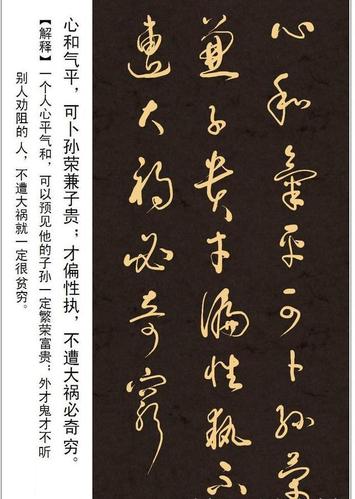 心和氣平可卜孫榮
兼子貴才偏性執不
遭大禍必奇窮
心和气平，可卜孙荣兼子贵；才偏性执，不遭大祸必奇穷。
【解释】一个人心平气和，可以预见他的子孙一定繁荣富贵；外才鬼才不听
别人劝阻的 人，不遭大祸就一定很贫穷。